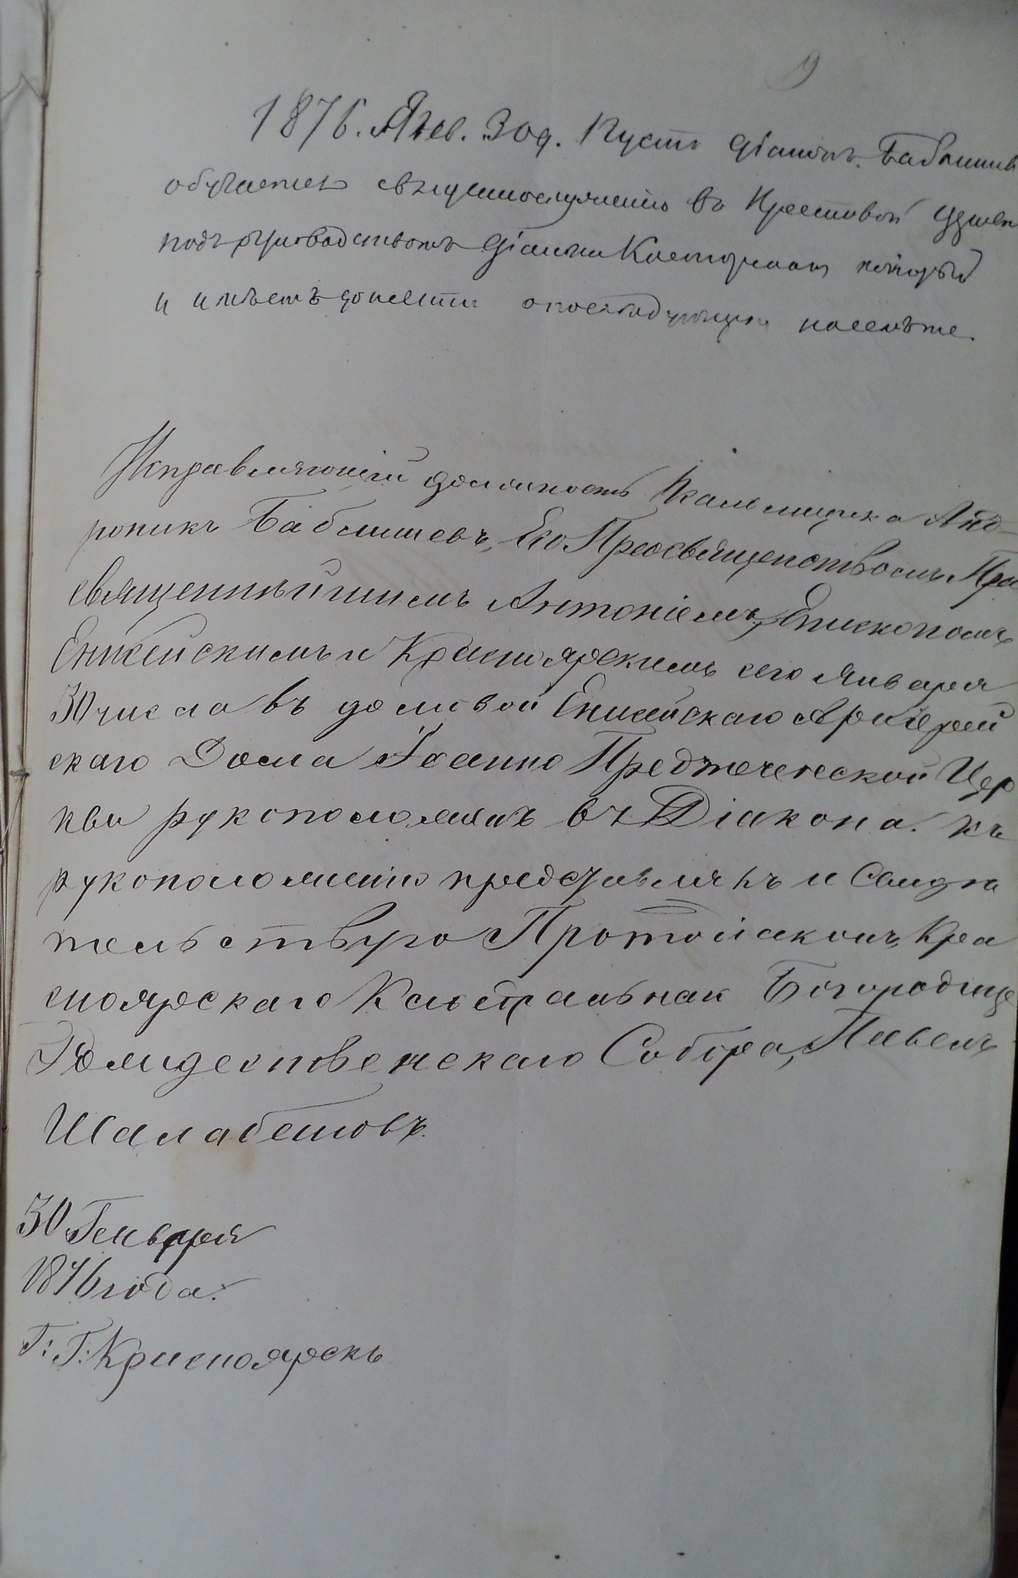 9
1876. Янв. 30 д. Пусть діаконъ Бабкишев
обучается священнослуженію въ Крестовой церкви
подъ руководствомъ діакона который
и имѣетъ донести о послѣдующемъ
Исправляющій должность Псаломщика Анд
роникъ Бабкишевъ, Его Преосвященствомъ Прео
священнѣйшимъ Антоніемъ, Епископомъ
Енисейскимъ и Красноярскимъ сего Января
30 числа въ домовой Енисейскаго Архіерей
скаго Дома Іоанно Предтеченской Цер
кви рукоположенъ въ Діакона. Къ
рукоположенію представлялъ и Свидѣ
тельствую Протодіаконъ, Кра
сноярскаго Каѳедральнаго Богородице
Рождественскаго Собора, Павелъ
Шалабановъ.
30 Генваря
1876 года.
Г: Г: Красноярскъ